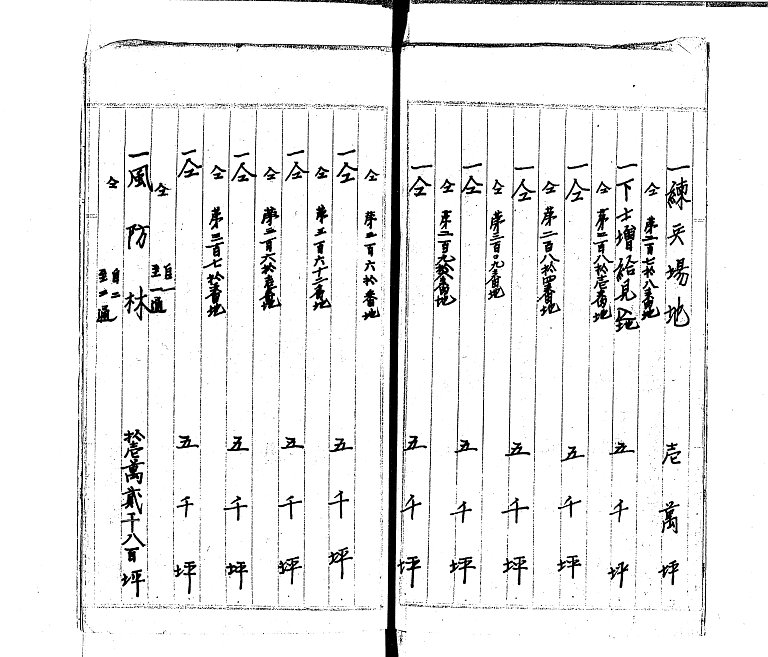 一練兵場地 壱萬坪
仝 第二百七拾八番地
一下士増給見込地 五千坪
仝 第二百八拾壱番地
一仝 五千坪
仝 第二百八拾四番地
一仝 五千坪
仝 第三百〇九番地
一仝 五千坪
仝 第二百九拾番地
一仝 五千坪
仝 第二百六拾番地
一仝 五千坪
仝 第五百六十三番地
一仝 五千坪
仝 第二百六拾壱番地
一仝 五千坪
仝 第三百七拾番地
一仝 五千坪
仝 自一至一通
一風防林 拾壱萬貳千八百坪
仝 自二至二通